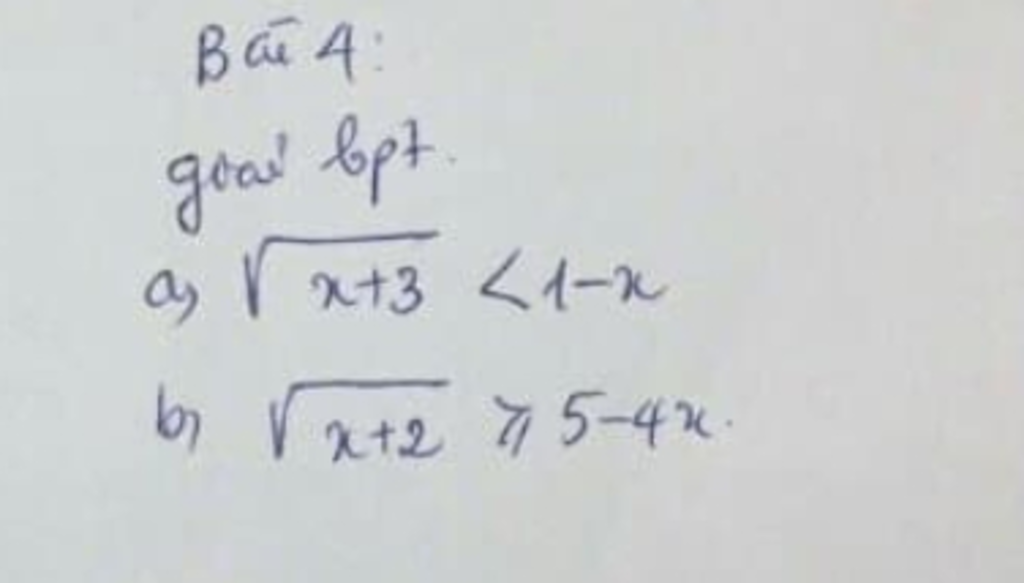 Bài 4:
giải bpt.
a) √(x+3) < 1-x
b) √(x+2) ⩾ 5-4x.